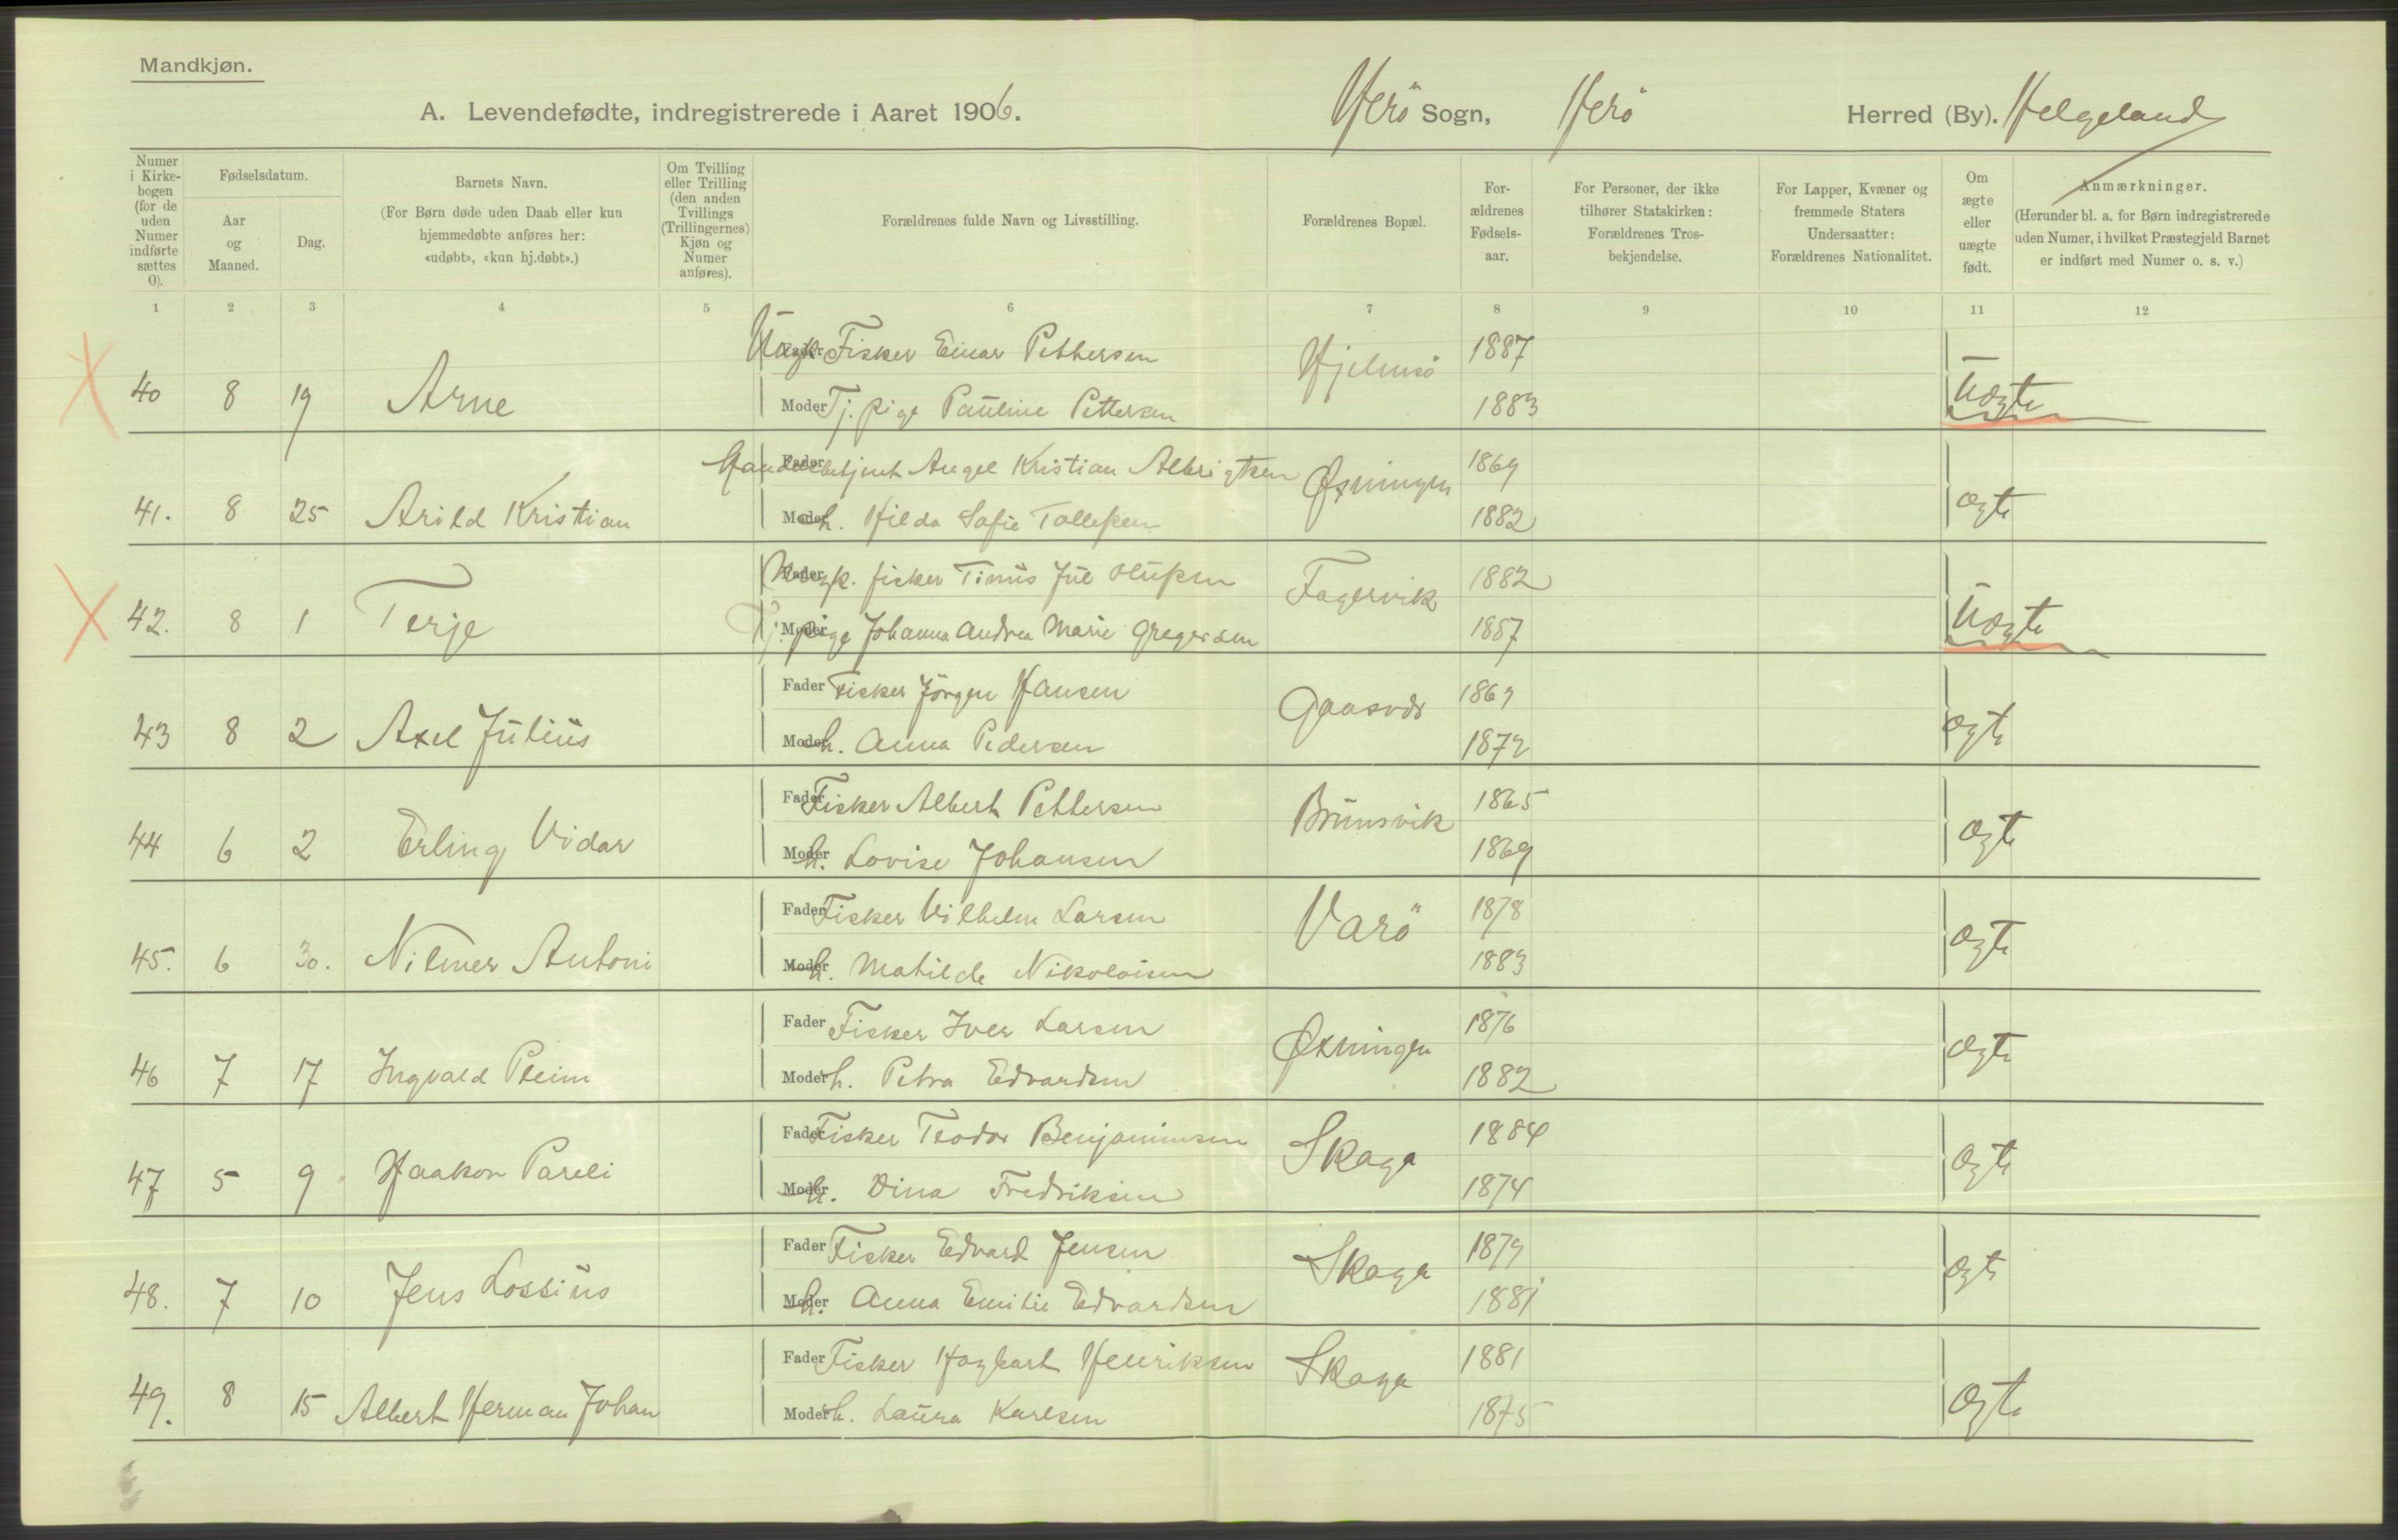 Mandkjøn.
A. Levendefødte, indregistrerede i Aaret 1906. Herö Sogn, Herö Herred (By). Helgeland
Numer i Kirke-bogen (for de uden Numer indførte sættes 0).
Fødselsdatum.
Aar og Maaned.
Dag.
Barnets Navn.
(For Børn døde uden Daab eller kun hjemmedøbte anføres her: «udøbt», «kun hj.døbt».)
Om Tvilling eller Trilling (den anden Tvillings (Trillingernes) Kjøn og Numer anføres).
Forældrenes fulde Navn og Livsstilling.
Forældrenes Bopæl.
For-ældrenes Fødsels-aar.
For Personer, der ikke tilhører Statskirken: Forældrenes Tros-bekjendelse.
For Lapper, Kvæner og fremmede Staters Undersaatter: Forældrenes Nationalitet.
Om ægte eller uægte født.
Anmærkninger.
(Herunder bl. a. for Børn indregistrerede uden Numer, i hvilket Præstegjeld Barnet er indført med Numer o. s. v.)
1 2 3 4 5 6 7 8 9 10 11 12
Fader Ungk. Fisker Einar Pettersen Hjelmsö 1887
40 8 19 Arne Uægte
Moder Tj. pige Pauline Pettersen 1883
Fader Handelsbetjent Angel Kristian Albrigtsen Øxningen 1869
41. 8 25 Arild Kristian ægte
Moder h. Hilda Sofie Tollefsen 1882
Fader Ungk. fisker Tinius Jul Olufsen Fagervik 1882
42. 8 1 Terje Uægte
Moder Tj. pige Johanna Andrea Marie Gregersen 1887
Fader Fisker Jörgen Hansen Gaasvær 1869
43 8 2 Axel Julius ægte
Moder h. Anna Pedersen 1872
Fader Fisker Albert Pettersen Brunsvik 1865
44 6 2 Erling Vidar ægte
Moder h. Lovise Johansen 1869
Fader Fisker Vilhelm Larsen Varö 1878
45. 6 30. Nilmer Antoni ægte
Moder h. Matilde Nikolaisen 1883
Fader Fisker Iver Larsen Øxningen 1876
46 7 17 Ingvald Pleim ægte
Moder h. Petra Edvardsen 1882
Fader Fisker Teodor Benjaminsen Skaga 1884
47 5 9 Haakon Pareli ægte
Moder h. Dina Fredriksen 1874
Fader Fisker Edvard Jensen Skaga 1879
48. 7 10 Jens Lossius ægte
Moder h. Anna Emilie Edvardsen 1881
Fader Fisker Hagbart Henriksen Skaga 1881
49. 8 15 Albert Herman Johan ægte
Moder h. Laura Karlsen 1875